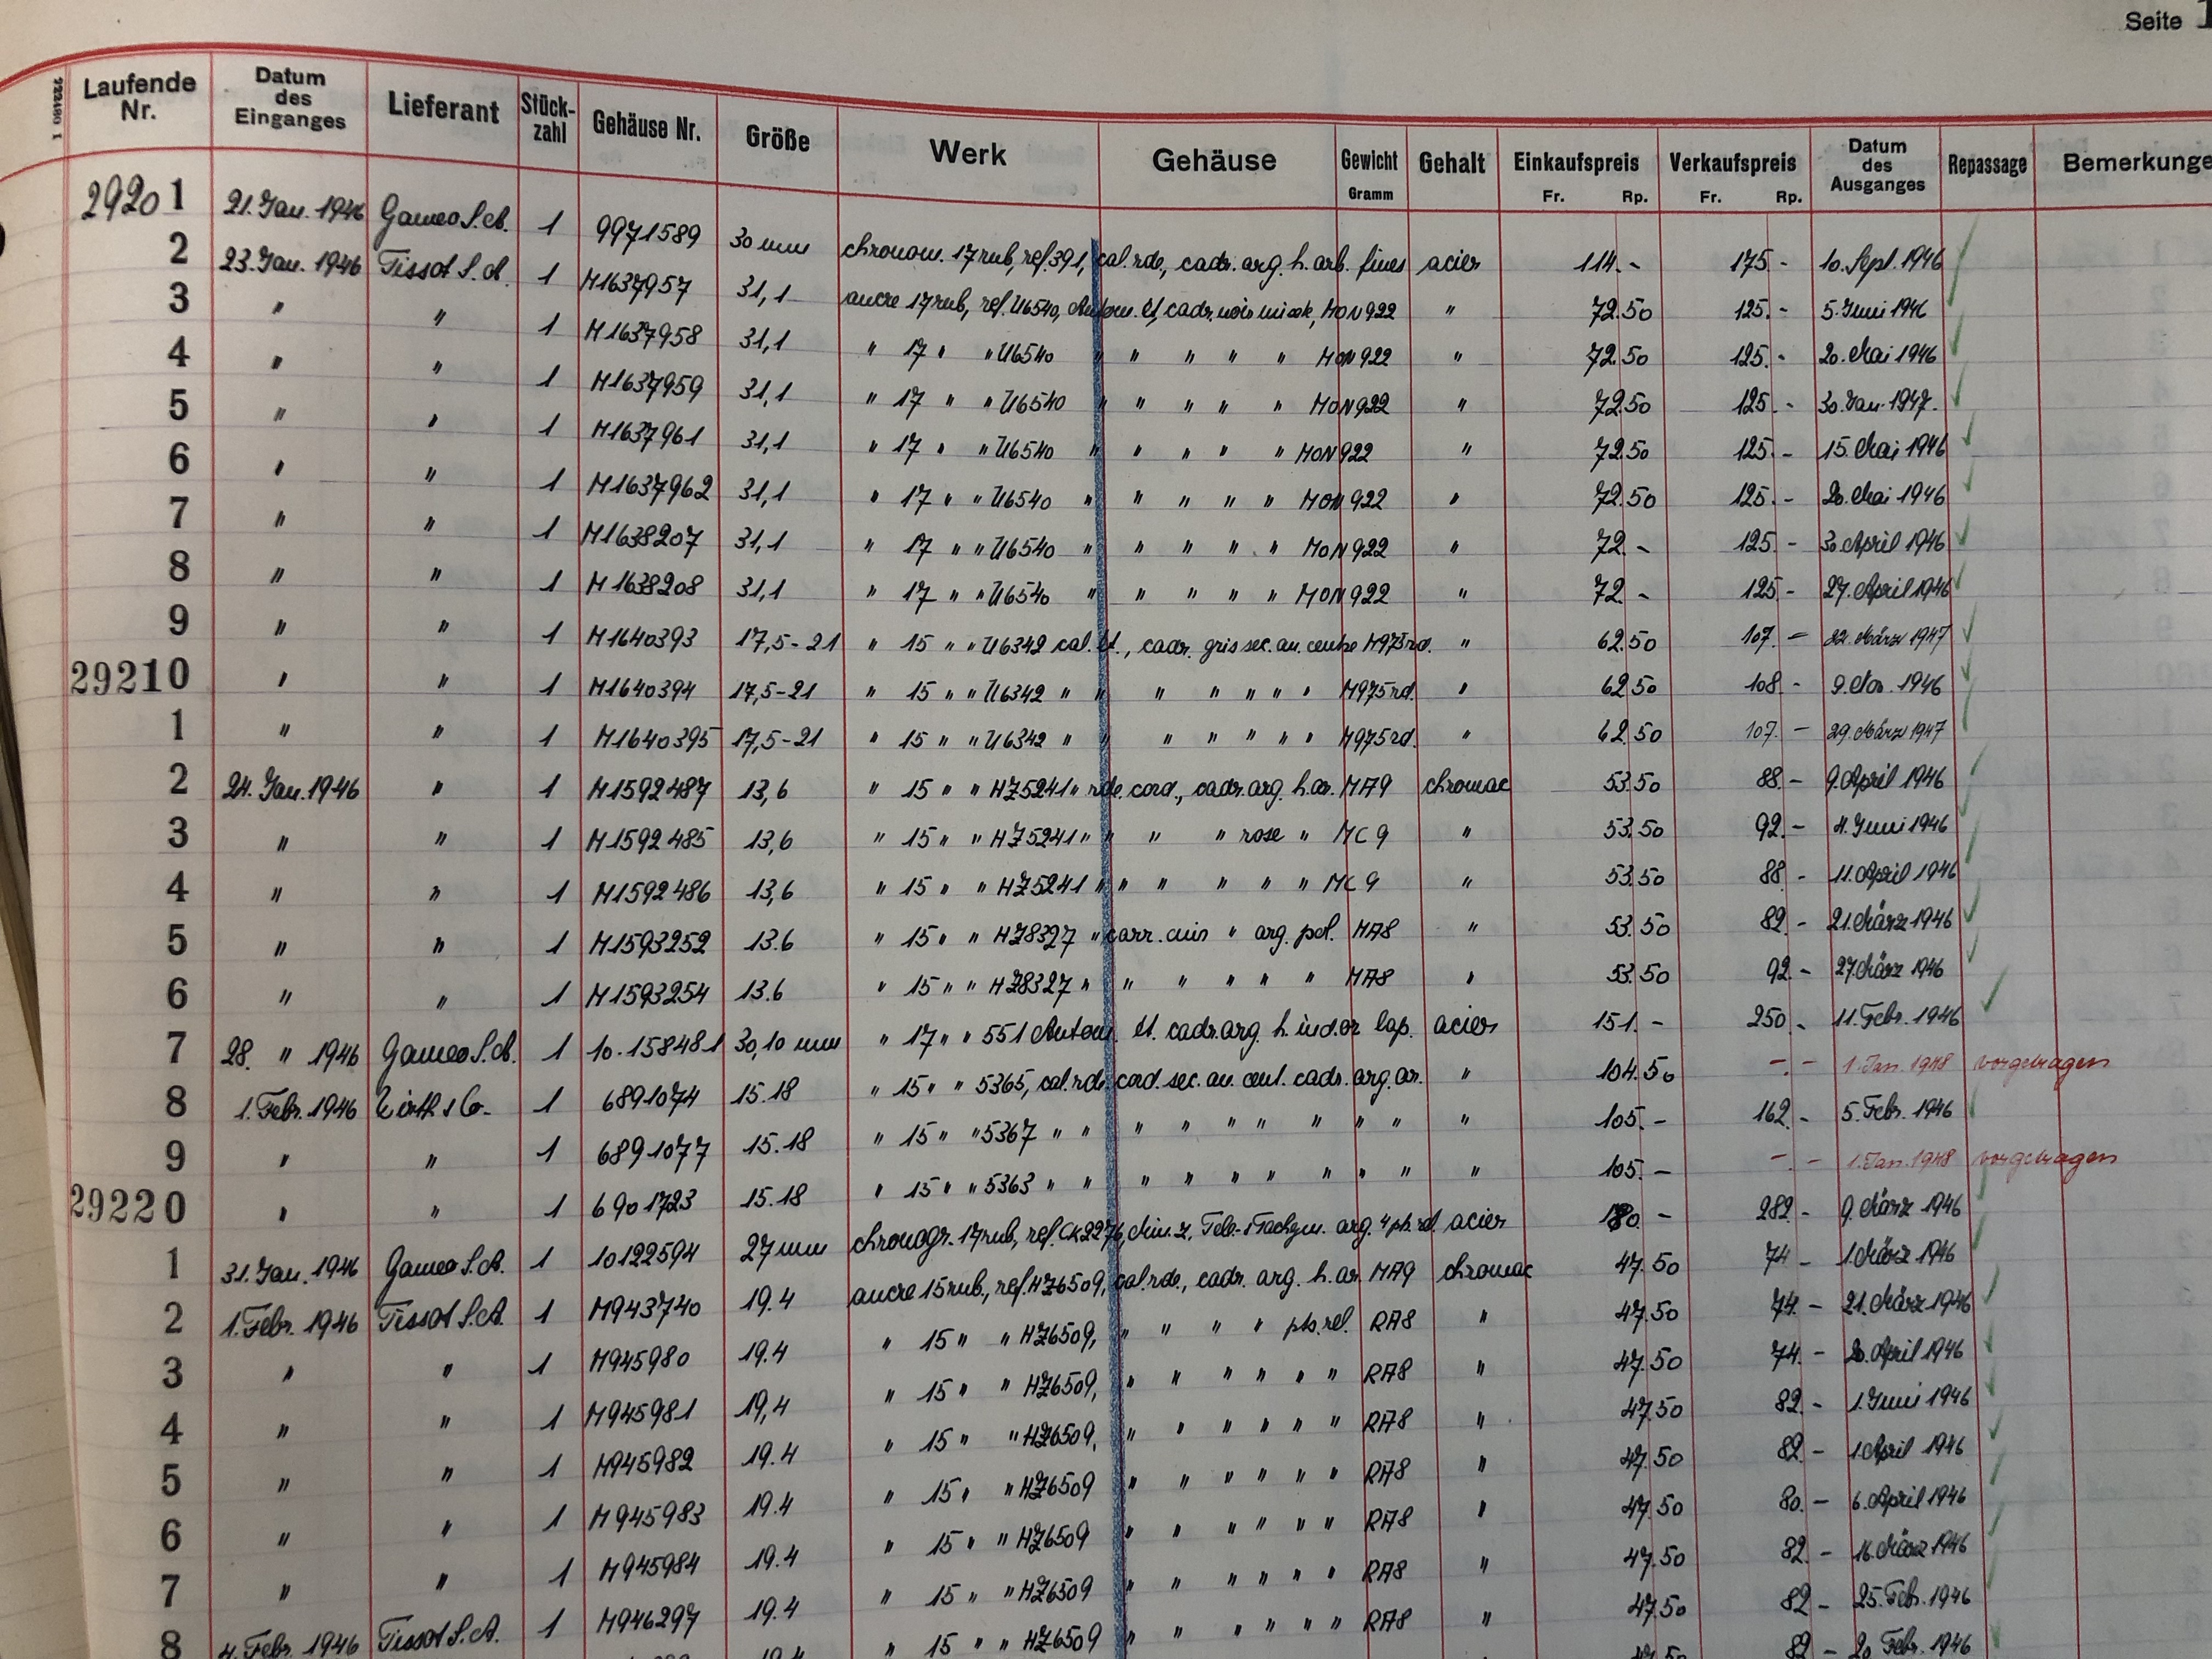 Seite 1
722480 1
Laufende Nr. Datum des Einganges Lieferant Stück-zahl Gehäuse Nr. Größe Werk Gehäuse Gewicht Gramm Gehalt Einkaufspreis Fr. Rp. Verkaufspreis Fr. Rp. Datum des Ausganges Repassage Bemerkunge
29201 21. Jan. 1946 Gameo S.A. 1 9971589 30 mm chronom. 17 rub, ref. 391, cal. rde, cadr. arg. h. arb. fines acier 114.- 175.- 10. Sept. 1946
2 23. Jan. 1946 Tissot S.A. 1 M1637957 31,1 ancre 17 rub, ref. U6540, Autom. ct, cadr. noir MON922 " 72.50 125.- 5. Juni 1946
3 " " 1 M1637958 31,1 " 17 " " U6540 " " " " " MON922 " 72.50 125.- 20. Mai 1946
4 " " 1 M1637959 31,1 " 17 " " U6540 " " " " " MON922 " 72.50 125.- 30. Jan. 1947.
5 " " 1 M1637961 31,1 " 17 " " U6540 " " " " " MON922 " 72.50 125.- 15. Mai 1946
6 " " 1 M1637962 31,1 " 17 " " U6540 " " " " " MON922 " 72.50 125.- 20. Mai 1946
7 " " 1 M1638207 31,1 " 17 " " U6540 " " " " " MON922 " 72.- 125.- 30. April 1946
8 " " 1 M1638208 31,1 " 17 " " U6540 " " " " " MON922 " 72.- 125.- 27. April 1946
9 " " 1 M1640393 17,5-21 " 15 " " U6342 cal. ct., cadr. gris sec. au centre M975rd. " 62.50 107.- 22. März 1947
29210 " " 1 M1640394 17,5-21 " 15 " " U6342 " " " " " " " M975rd. " 62.50 108.- 9. Nov. 1946
1 " " 1 M1640395 17,5-21 " 15 " " U6342 " " " " " " " M975rd. " 62.50 107.- 29. März 1947
2 24. Jan. 1946 " 1 M1592487 13,6 " 15 " " HZ5241 " rde. cord., cadr. arg. h. ar. MA9 chromac 53.50 88.- 9. April 1946
3 " " 1 M1592485 13,6 " 15 " " HZ5241 " " " " rose " MC9 " 53.50 92.- 4. Juni 1946
4 " " 1 M1592486 13,6 " 15 " " HZ5241 " " " " " " MC9 " 53.50 88.- 11. April 1946
5 " " 1 M1593252 13.6 " 15 " " HZ8327 " carr. cuir " arg. pol. MA8 " 53.50 82.- 21. März 1946
6 " " 1 M1593254 13.6 " 15 " " HZ8327 " " " " " " MA8 " 53.50 92.- 27. März 1946
7 28. " 1946 Gameo S.A. 1 10.158481 30,10 mm " 17 " " 551 Autom. ct. cadr. arg. h. ind. or lap. acier 151.- 250.- 11. Febr. 1946
8 1. Febr. 1946 & Co. 1 6891074 15.18 " 15 " " 5365, cal. rde. cord. sec. au cent. cadr. arg. ar. " 104.50 -.- 1. Jan. 1948 vorgetragen
9 " " 1 6891077 15.18 " 15 " " 5367 " " " " " " " " " " 105.- 162.- 5. Febr. 1946
29220 " " 1 6901723 15.18 " 15 " " 5363 " " " " " " " " " " 105.- -.- 1. Jan. 1948 vorgetragen
1 31. Jan. 1946 Gameo S.A. 1 10122594 27 mm chronogr. 17 rub, ref. CK2276, Min. Z, Tele- & Tachym. arg. 4 ph. rd. acier 180.- 282.- 9. März 1946
2 1. Febr. 1946 Tissot S.A. 1 M943740 19.4 ancre 15 rub., ref. HZ6509, cal. rde, cadr. arg. h. ar. MA9 chromac 47.50 74.- 1. März 1946
3 " " 1 M945980 19.4 " 15 " " HZ6509, " " " " pts. rel. RA8 " 47.50 74.- 21. März 1946
4 " " 1 M945981 19,4 " 15 " " HZ6509, " " " " " " RA8 " 47.50 74.- 20. April 1946
5 " " 1 M945982 19.4 " 15 " " HZ6509, " " " " " " RA8 " 47.50 82.- 1. Juni 1946
6 " " 1 M945983 19.4 " 15 " " HZ6509 " " " " " " RA8 " 47.50 82.- 1. April 1946
7 " " 1 M945984 19.4 " 15 " " HZ6509 " " " " " " RA8 " 47.50 80.- 6. April 1946
8 4. Febr. 1946 Tissot S.A. 1 M946297 19.4 " 15 " " HZ6509 " " " " " " RA8 " 47.50 82.- 16. März 1946
19.4 " 15 " " HZ6509 " " " " " " RA8 " 47.50 82.- 25. Feb. 1946
82.- 20. Febr. 1946